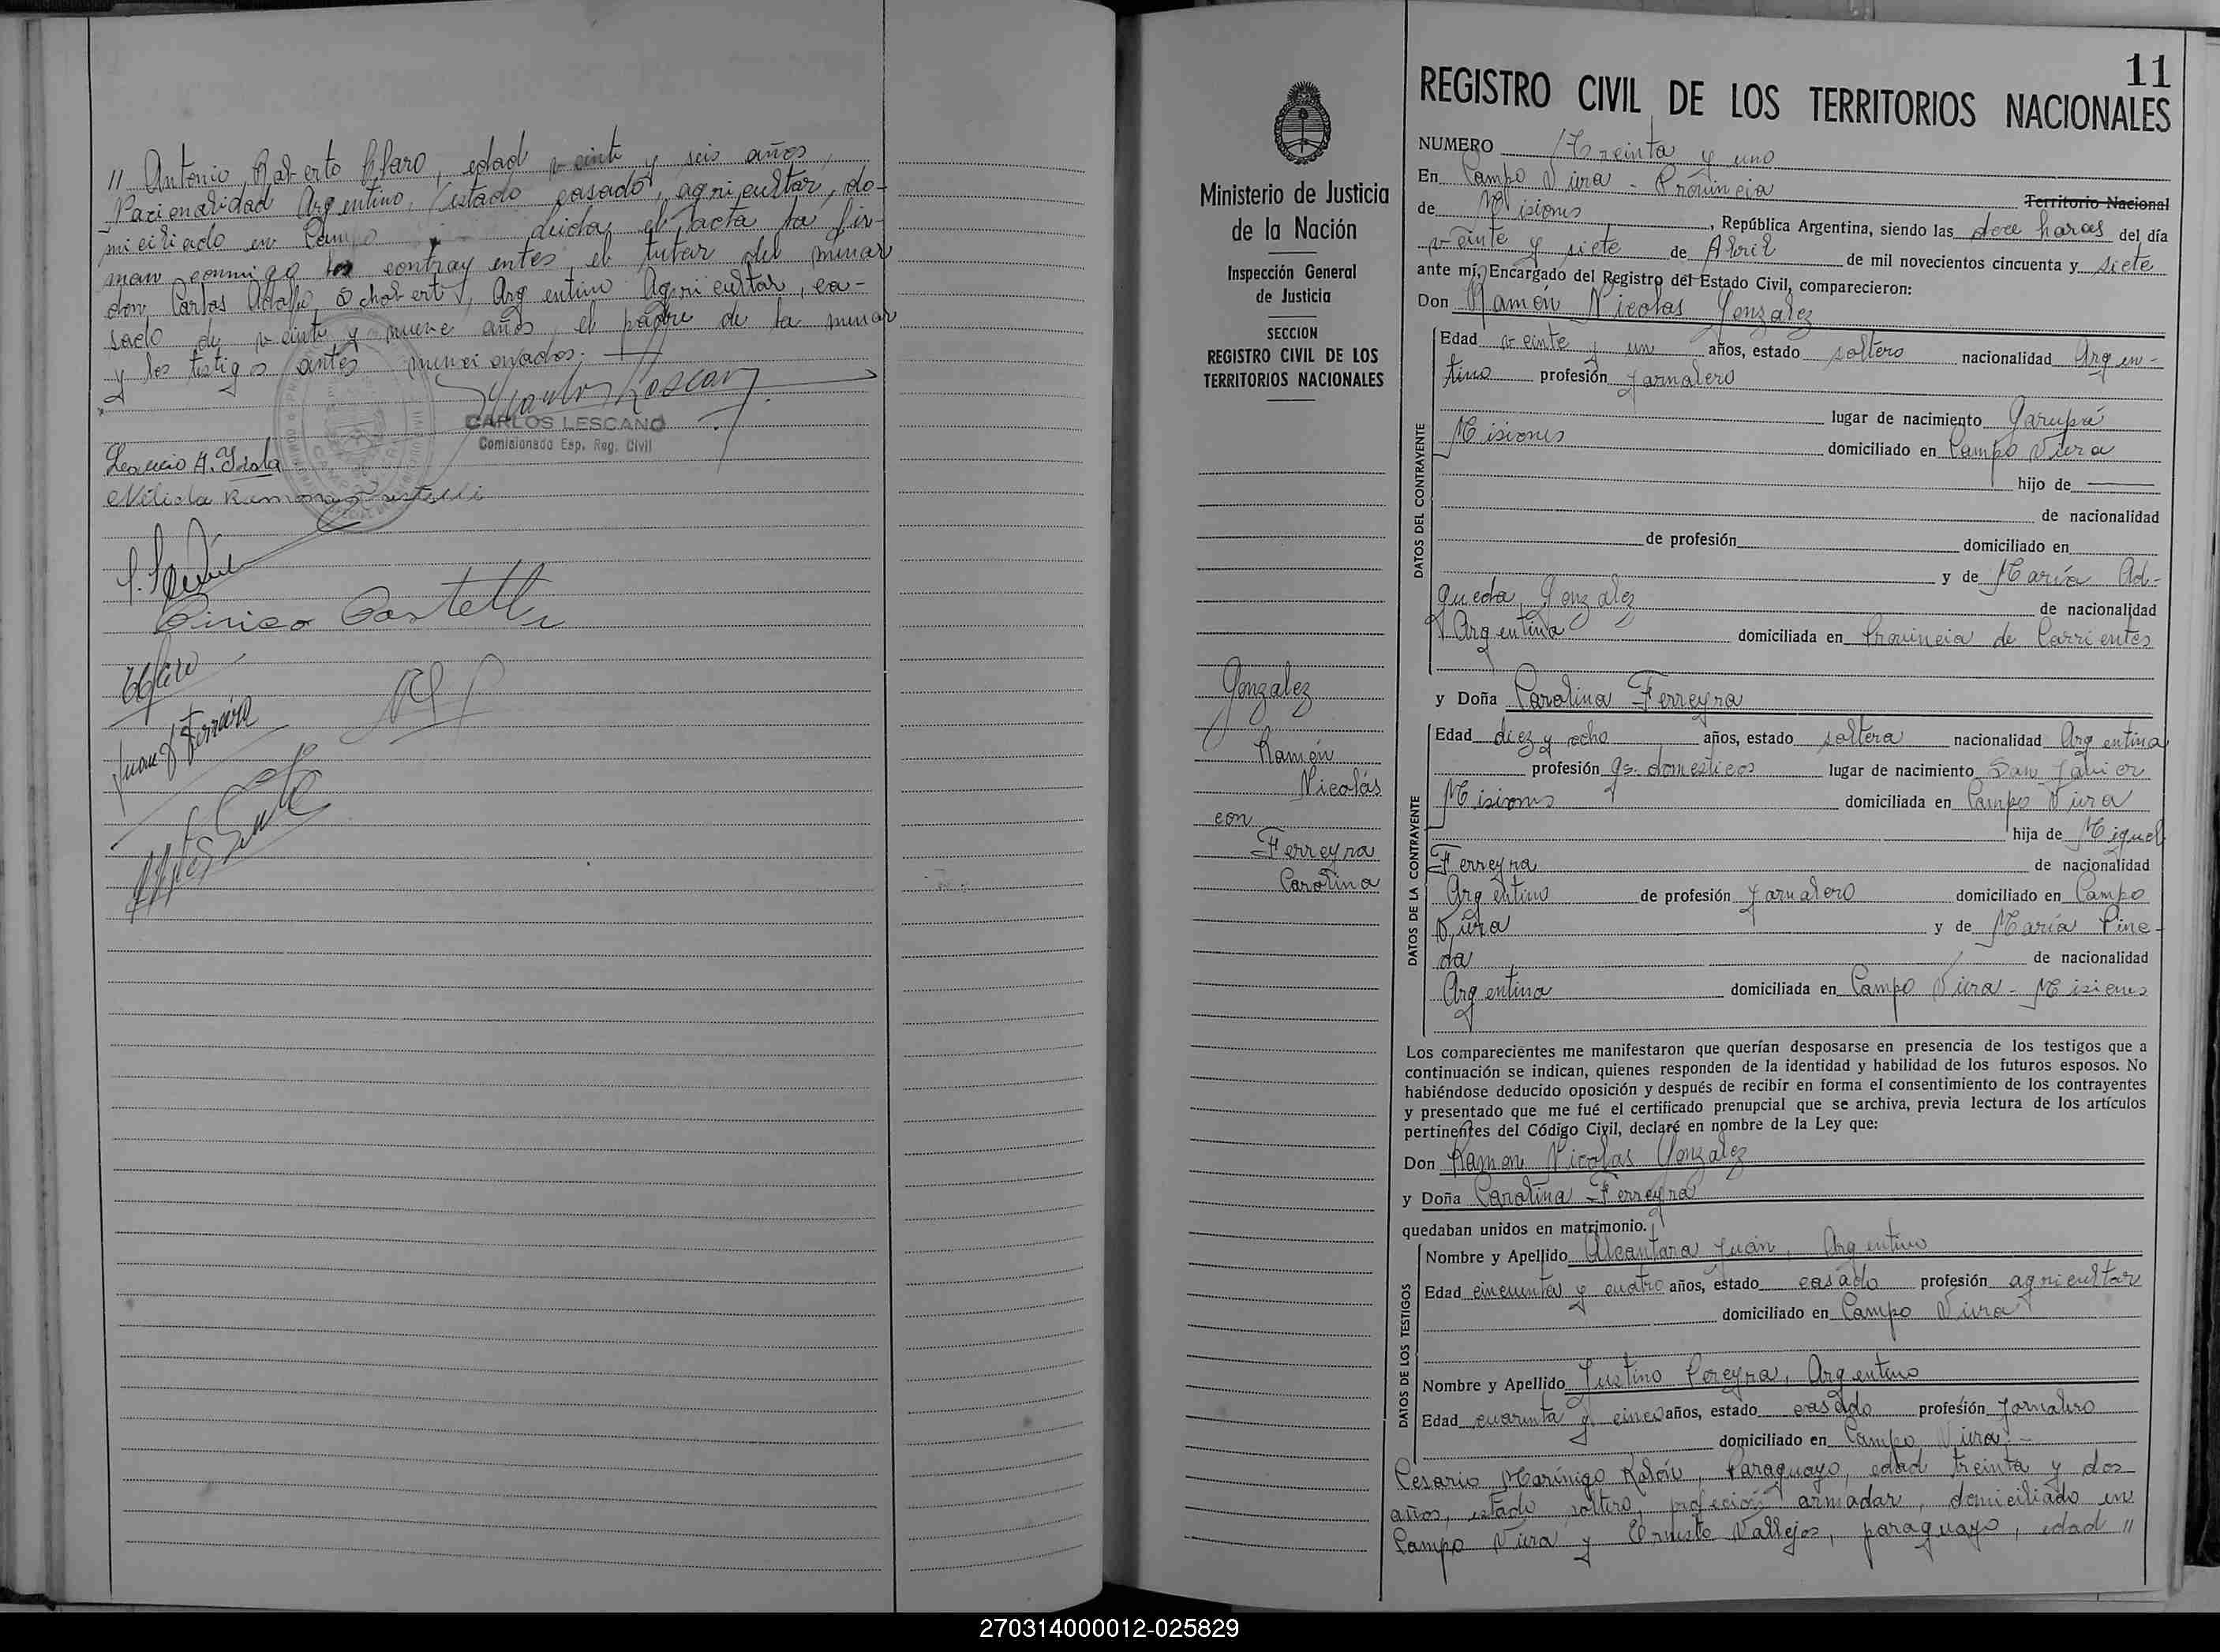 // Antonio Roberto Claro, edad veinte y seis años,
Nacionalidad Argentino, estado casado, agricultor, do-
miciliado en Campo Leida el tacta la fir-
man conmigo los contrayentes, el tutor del menor
don Carlos Adolfo Schobert, Argentino Agricultor, ca-
sado de veinte y nueve años, el padre de la menor
y los testigos antes mencionados.
CARLOS LESCANO
Comisionado Esp. Reg. Civil
Lesmeio A. Isola
Nélida Ramona Castelli
Ciriaco Castelli
Juan Ferreira
11
REGISTRO CIVIL DE LOS TERRITORIOS NACIONALES
Ministerio de Justicia
de la Nación
Inspección General
de Justicia
SECCION
REGISTRO CIVIL DE LOS
TERRITORIOS NACIONALES
Gonzalez
Ramón
Nicolás
con
Ferreyra
Carolina
NUMERO Treinta y uno
En Campo Viera - Provincia Territorio Nacional
de Misiones, República Argentina, siendo las doce horas del día
veinte y siete de Abril de mil novecientos cincuenta y siete
ante mí, Encargado del Registro del Estado Civil, comparecieron:
Don Ramón Nicolas Gonzalez
DATOS DEL CONTRAYENTE
Edad veinte y un años, estado soltero nacionalidad Argen-
tino profesión jornalero
lugar de nacimiento Garupá
Misiones domiciliado en Campo Viera
hijo de
de nacionalidad
de profesión domiciliado en
y de María Ad-
queda Gonzalez de nacionalidad
Argentina domiciliada en Provincia de Corrientes
y Doña Carolina Ferreyra
DATOS DE LA CONTRAYENTE
Edad diez y ocho años, estado soltera nacionalidad Argentina
profesión qs. domesticos lugar de nacimiento San Javier
Misiones domiciliada en Campo Viera
hija de Miguel
Ferreyra de nacionalidad
Argentino de profesión Jornalero domiciliado en Campo
Viera y de María Pine-
da de nacionalidad
Argentina domiciliada en Campo Viera - Misiones
Los comparecientes me manifestaron que querían desposarse en presencia de los testigos que a
continuación se indican, quienes responden de la identidad y habilidad de los futuros esposos. No
habiéndose deducido oposición y después de recibir en forma el consentimiento de los contrayentes
y presentado que me fué el certificado prenupcial que se archiva, previa lectura de los artículos
pertinentes del Código Civil, declaré en nombre de la Ley que:
Don Ramon Nicolas Gonzalez
y Doña Carolina Ferreyra
quedaban unidos en matrimonio.
DATOS DE LOS TESTIGOS
Nombre y Apellido Alcantara Juan, Argentino
Edad cincuenta y cuatro años, estado casado profesión agricultor
domiciliado en Campo Viera
Nombre y Apellido Justino Pereyra, Argentino
Edad cuarenta y cinco años, estado casado profesión Jornalero
domiciliado en Campo Viera.-
Cesario Marínigo Rolón, Paraguayo, edad treinta y dos
años, estado soltero, profeción armador, domiciliado en
Campo Viera y Ernesto Vallejos, paraguayo, edad //
270314000012-025829